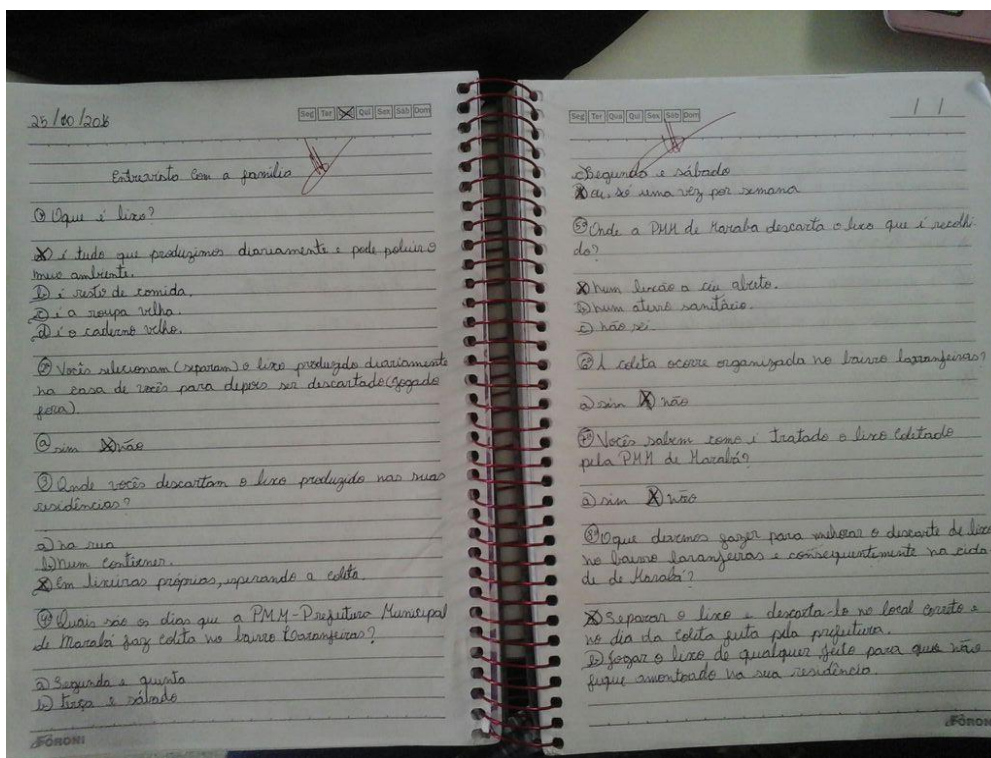 25/10/2016
Seg Ter Qui Sex Sáb Dom
Entrevista com a família
1 Oque é lixo?
X é tudo que produzimos diariamente e pode poluir o
meio ambiente.
b) é resto de comida.
c) é a roupa velha.
d) é o caderno velho.
2) Vocês selecionam (separam) o lixo produzido diariamente
na casa de vocês para depois ser descartado (jogado
fora).
a sim X não
3 Onde vocês descartam o lixo produzido nas suas
residências?
a) na rua
b) num contiener.
X Em lixeiras próprias, esperando a coleta.
4) Quais são os dias que a PMM-Prefeitura Municipal
de Marabá faz coleta no bairro Laranjeiras?
a) Segunda e quinta
b) terça e sábado
FORONI
Seg Ter Qua Qui Sex Sáb Dom
/ /
c) Segunda e sábado
X ou, só uma vez por semana
5) Onde a PMM de Maraba descarta o lixo que é recolhi-
do?
X num lixão a céu aberto.
b) num aterro sanitário.
c) não sei.
6) A coleta ocorre organizada no bairro laranjeiras?
a) sim X não
7) Vocês sabem como é tratado o lixo coletado
pela PMM de Marabá?
a) sim X não
8) Oque devemos fazer para melhorar o descarte de lixo
no bairro laranjeiras e consequentemente na cida-
de de Marabá?
X Separar o lixo e descarta-lo no local correto e
no dia da coleta feita pela prefeitura.
b) Jogar o lixo de qualquer jeito para que não
fique amontoado na sua residência.
FORONI